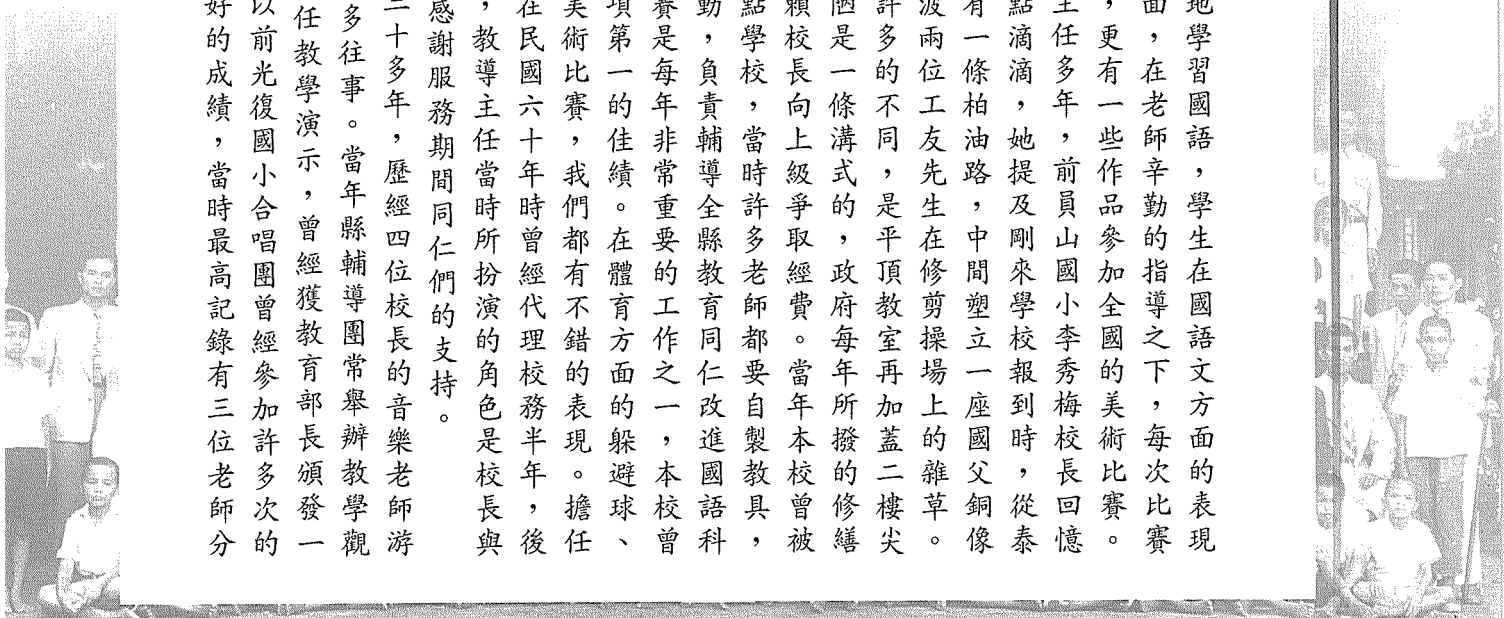 地學習國語，學生在國語文方面的表現
面，在老師辛勤的指導之下，每次比賽
，更有一些作品參加全國的美術比賽。
主任多年，前員山國小李秀梅校長回憶
點滴滴，她提及剛來學校報到時，從泰
有一條柏油路，中間塑立一座國父銅像
波兩位工友先生在修剪操場上的雜草。
許多的不同，是平頂教室再加蓋二樓尖
陋是一條溝式的，政府每年所撥的修繕
賴校長向上級爭取經費。當年本校曾被
點學校，當時許多老師都要自製教具，
動，負責輔導全縣教育同仁改進國語科
賽是每年非常重要的工作之一，本校曾
項第一的佳績。在體育方面的躲避球、
美術比賽，我們都有不錯的表現。擔任
在民國六十年時曾經代理校務半年，後
，教導主任當時所扮演的角色是校長與
感謝服務期間同仁們的支持。
十多年，歷經四位校長的音樂老師游
多往事。當年縣輔導團常舉辦教學觀
任教學演示，曾經獲教育部長頒發一
以前光復國小合唱團曾經參加許多次的
好的成績，當時最高記錄有三位老師分